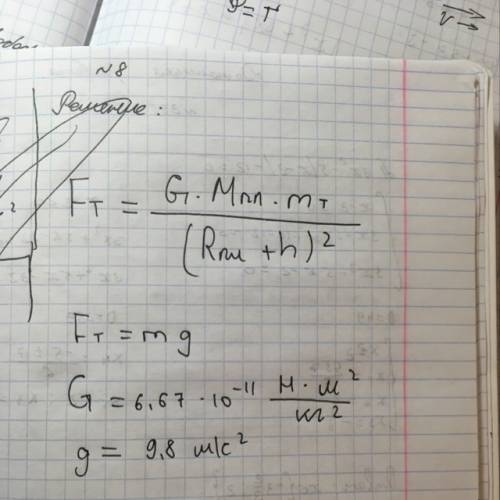 P = T
v →
№8
Решение :
Fт = G · Mпл · mт / (Rпл + h)²
Fт = m g
G = 6,67 · 10⁻¹¹ Н · м² / кг²
g = 9,8 м/с²